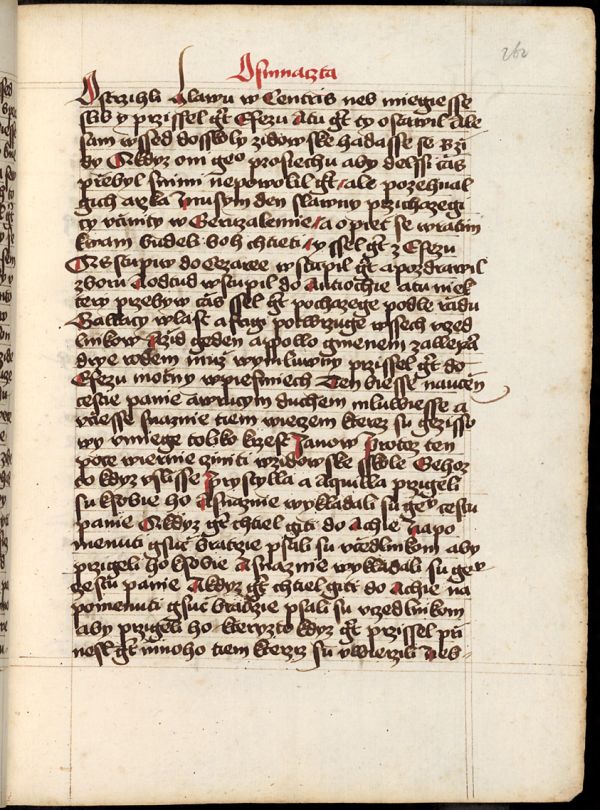 262
Osmnaczta
Ostrzihli hlawu w Centris neb miegiesse
slib y przissel gt Efezu A tu gt ty ostawil Ale
sam wssed do sskoly zidowske hadasse se s zi
dy A kdyz om geo prosiechu aby delssi czas
przebyl s nimi nepowolil gt ale pozehnal
gich a rzka Musym den slawny przichazegi
cy vciniti w Geruzalemie a opiet se wratim
k wam budeli boh chtieti y ssel gt z Efezu
A sstupiw do Cezaree wstupil gt a pozdrawil
zboru A odtud wstupil do Antiochie a tu niek
tery przebyw czas ssel gt pochazege podle rzadu
Gallacy wlast a frigi potwrzuge wssech vczed
linkow A zid geden Apollo gmenem z allexan
drye rodem muz wymluwny przissel gt do
Efezu moczny w piesmiech Ten biesse naucen
cestie panie a wrucym duchem mluwiesse a
vciesse snaznie tiem wieczem kterez su gezisso
wy vmiege toliko krzest Janow Protoz ten
pocze wiernie ciniti w zidowske sskole Gehoz
to kdyz vslisse Pryscylla a Aquilla przigeli
su k sobie ho A snaznie wykladali su geo cestu
panie A kdyz gt chtiel giti do Achie napo
menuti gsuc bratrzie psali su vczedlnikom aby
przigeli ho k sobie A snaznie wykladali su geo
cestu panie A kdyz gt chtiel giti do Achie na
pomenuti gsuc bratrzie psali su vczedlnikom
aby przigeli ho kteryzto kdyz gt przissel pri
nesl gt mnoho tiem kterziz su vwierzili Neb